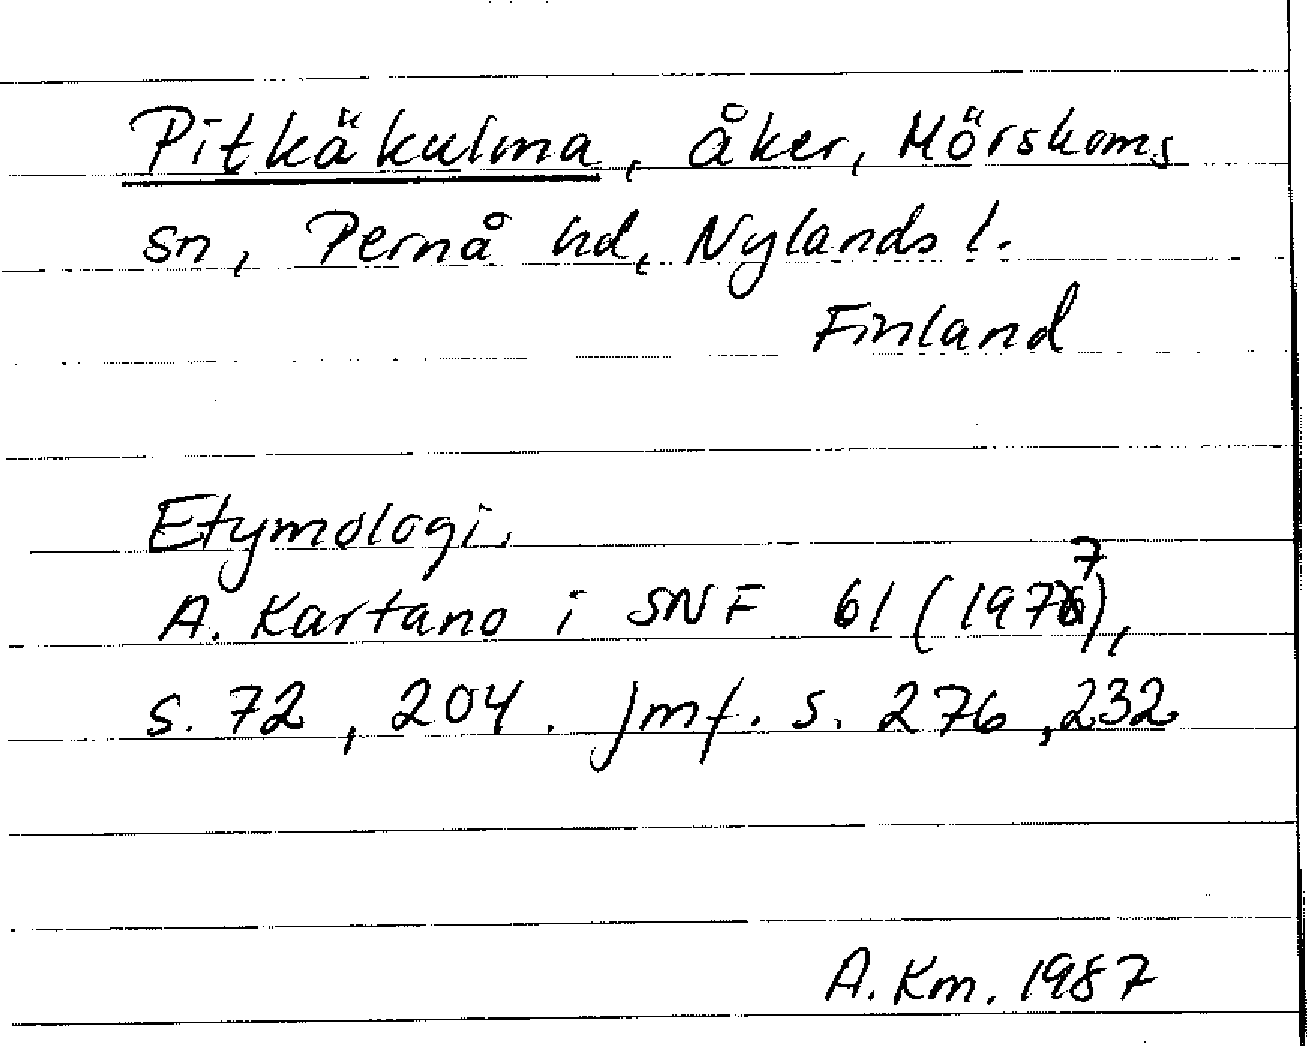 Pitkäkulma, åker, Mörskoms
sn, Pernå hd, Nylands l.
Finland
Etymologi.
A. Kartano i SNF 61 (1977),
s. 72, 204. Jmf. s. 276, 232
A. Km. 1987